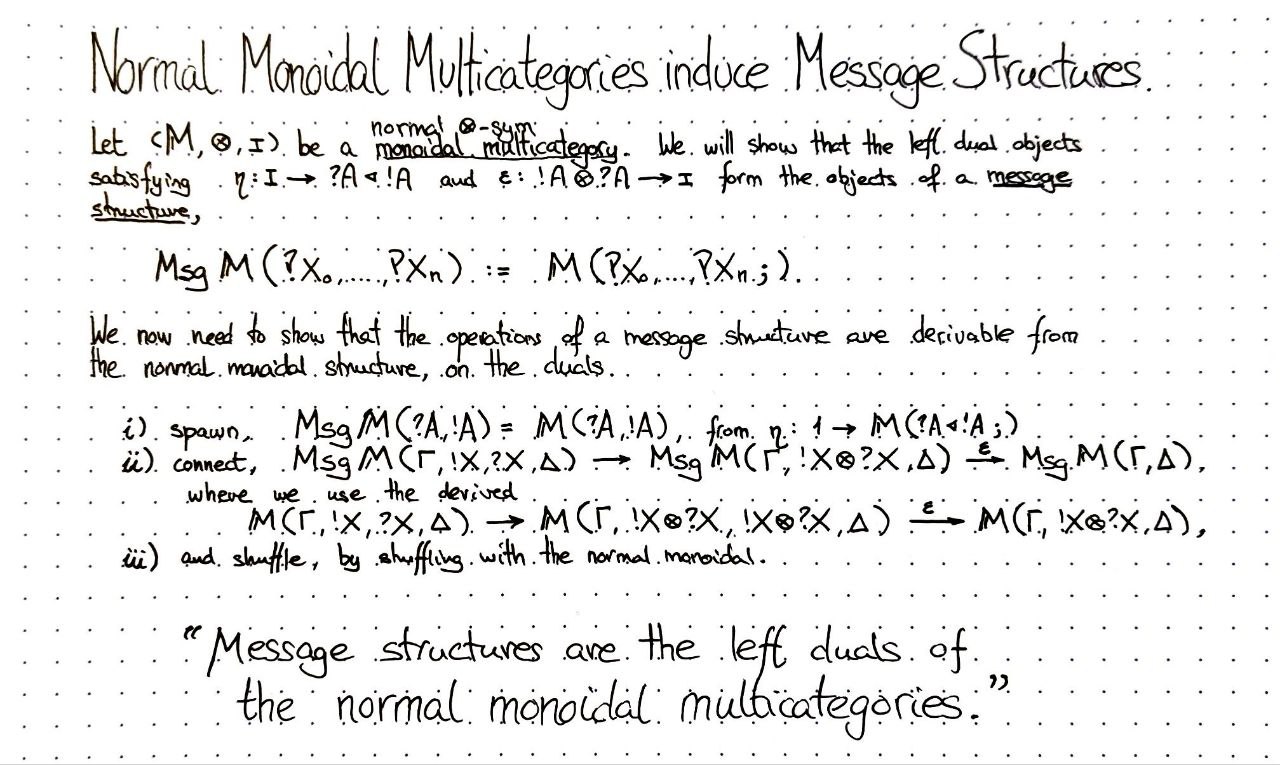 Normal Monoidal Multicategories induce Message Structures.
Let (M, ⊗, I) be a normal ⊗-sym monoidal multicategory. We will show that the left dual objects
satisfying η: I → ?A ◁ !A and ε: !A ⊗ ?A → I form the objects of a message
structure,
Msg M(?X₀,.....,?Xₙ) := M(?X₀,...,?Xₙ ; ).
We now need to show that the operations of a message structure are derivable from
the normal monoidal structure, on the duals.
i) spawn, Msg M(?A, !A) = M(?A, !A), from η: 1 → M(?A ◁ !A ; )
ii) connect, Msg M(Γ, !X, ?X, Δ) → Msg M(Γ, !X⊗?X, Δ) —ε→ Msg M(Γ, Δ),
where we use the derived
M(Γ, !X, ?X, Δ) → M(Γ, !X⊗?X, !X⊗?X, Δ) —ε→ M(Γ, !X⊗?X, Δ),
iii) and shuffle, by shuffling with the normal monoidal.
“Message structures are the left duals of
the normal monoidal multicategories.”